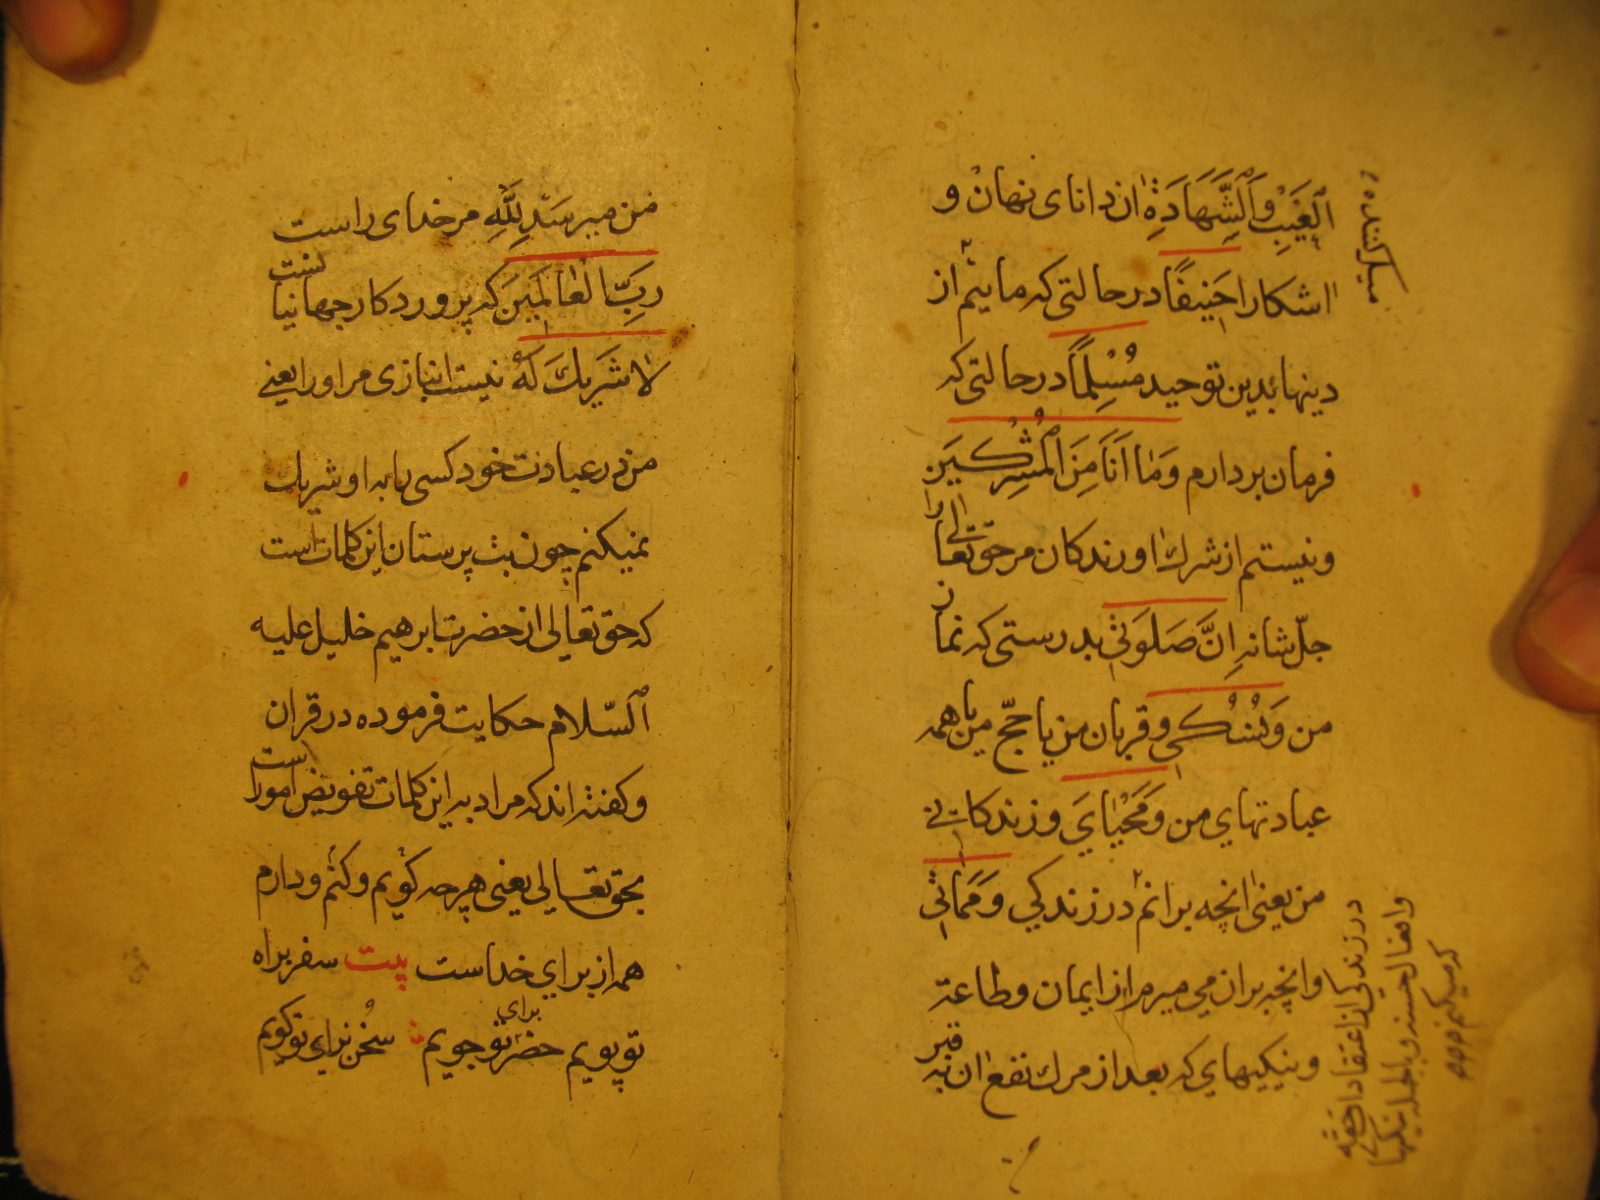 اَلْغَيْبِ وَالشَّهَادَةِ ان دانای نهان و
اشکارا حَنِيفًا در حالتی که مایٔلم از
دینها بدین توحید مُسْلِمًا در حالتی که
فرمان بردارم وَمٰا اَنَا مِنَ الْمُشْرِكِينَ
ونیستم از شرك اورندکان مر حق تعالی را
جلّ شانه اِنَّ صَلَوتٖي بدرستی که نماز
من وَنُسُكٖي و قربان من یا حجّ من یا همه
عبادتهاي من وَمَحْيٰايَ و زندکانی
من یعنی انچه برانم در زندکي وَمَمٰاتٖي
وانچه بران مي میرم از ایمان وطاعة
ونیکیهاي که بعد از مرك نفع ان به قبر
میل کننده ه
در زندکی از اعتقادا حقه
وافعال حسنه وبالجمله نیکیها
که میکنم
من میرسد لِلّٰهِ مر خدای راست
رَبِّ الْعٰالَمٖينَ که پروردکار جهانیانست
لاٰ شَرٖيكَ لَهُ نیست انبازی مر اورا یعنے
من در عبادت خود کسی را به او شریك
نمیکنم چون بت پرستان این کلمات است
که حق تعالی از حضرت ابرهیم خلیل علیه
السّلام حکایت فرموده در قران
وکفته اند که مراد به این کلمات تفویض امور است
بحق تعالی یعنی هر چه کویم وکنم ودارم
همه از برای خداست بیت سفر براه
تو پویم حضر برای تو جویم سُخن برای تو کویم